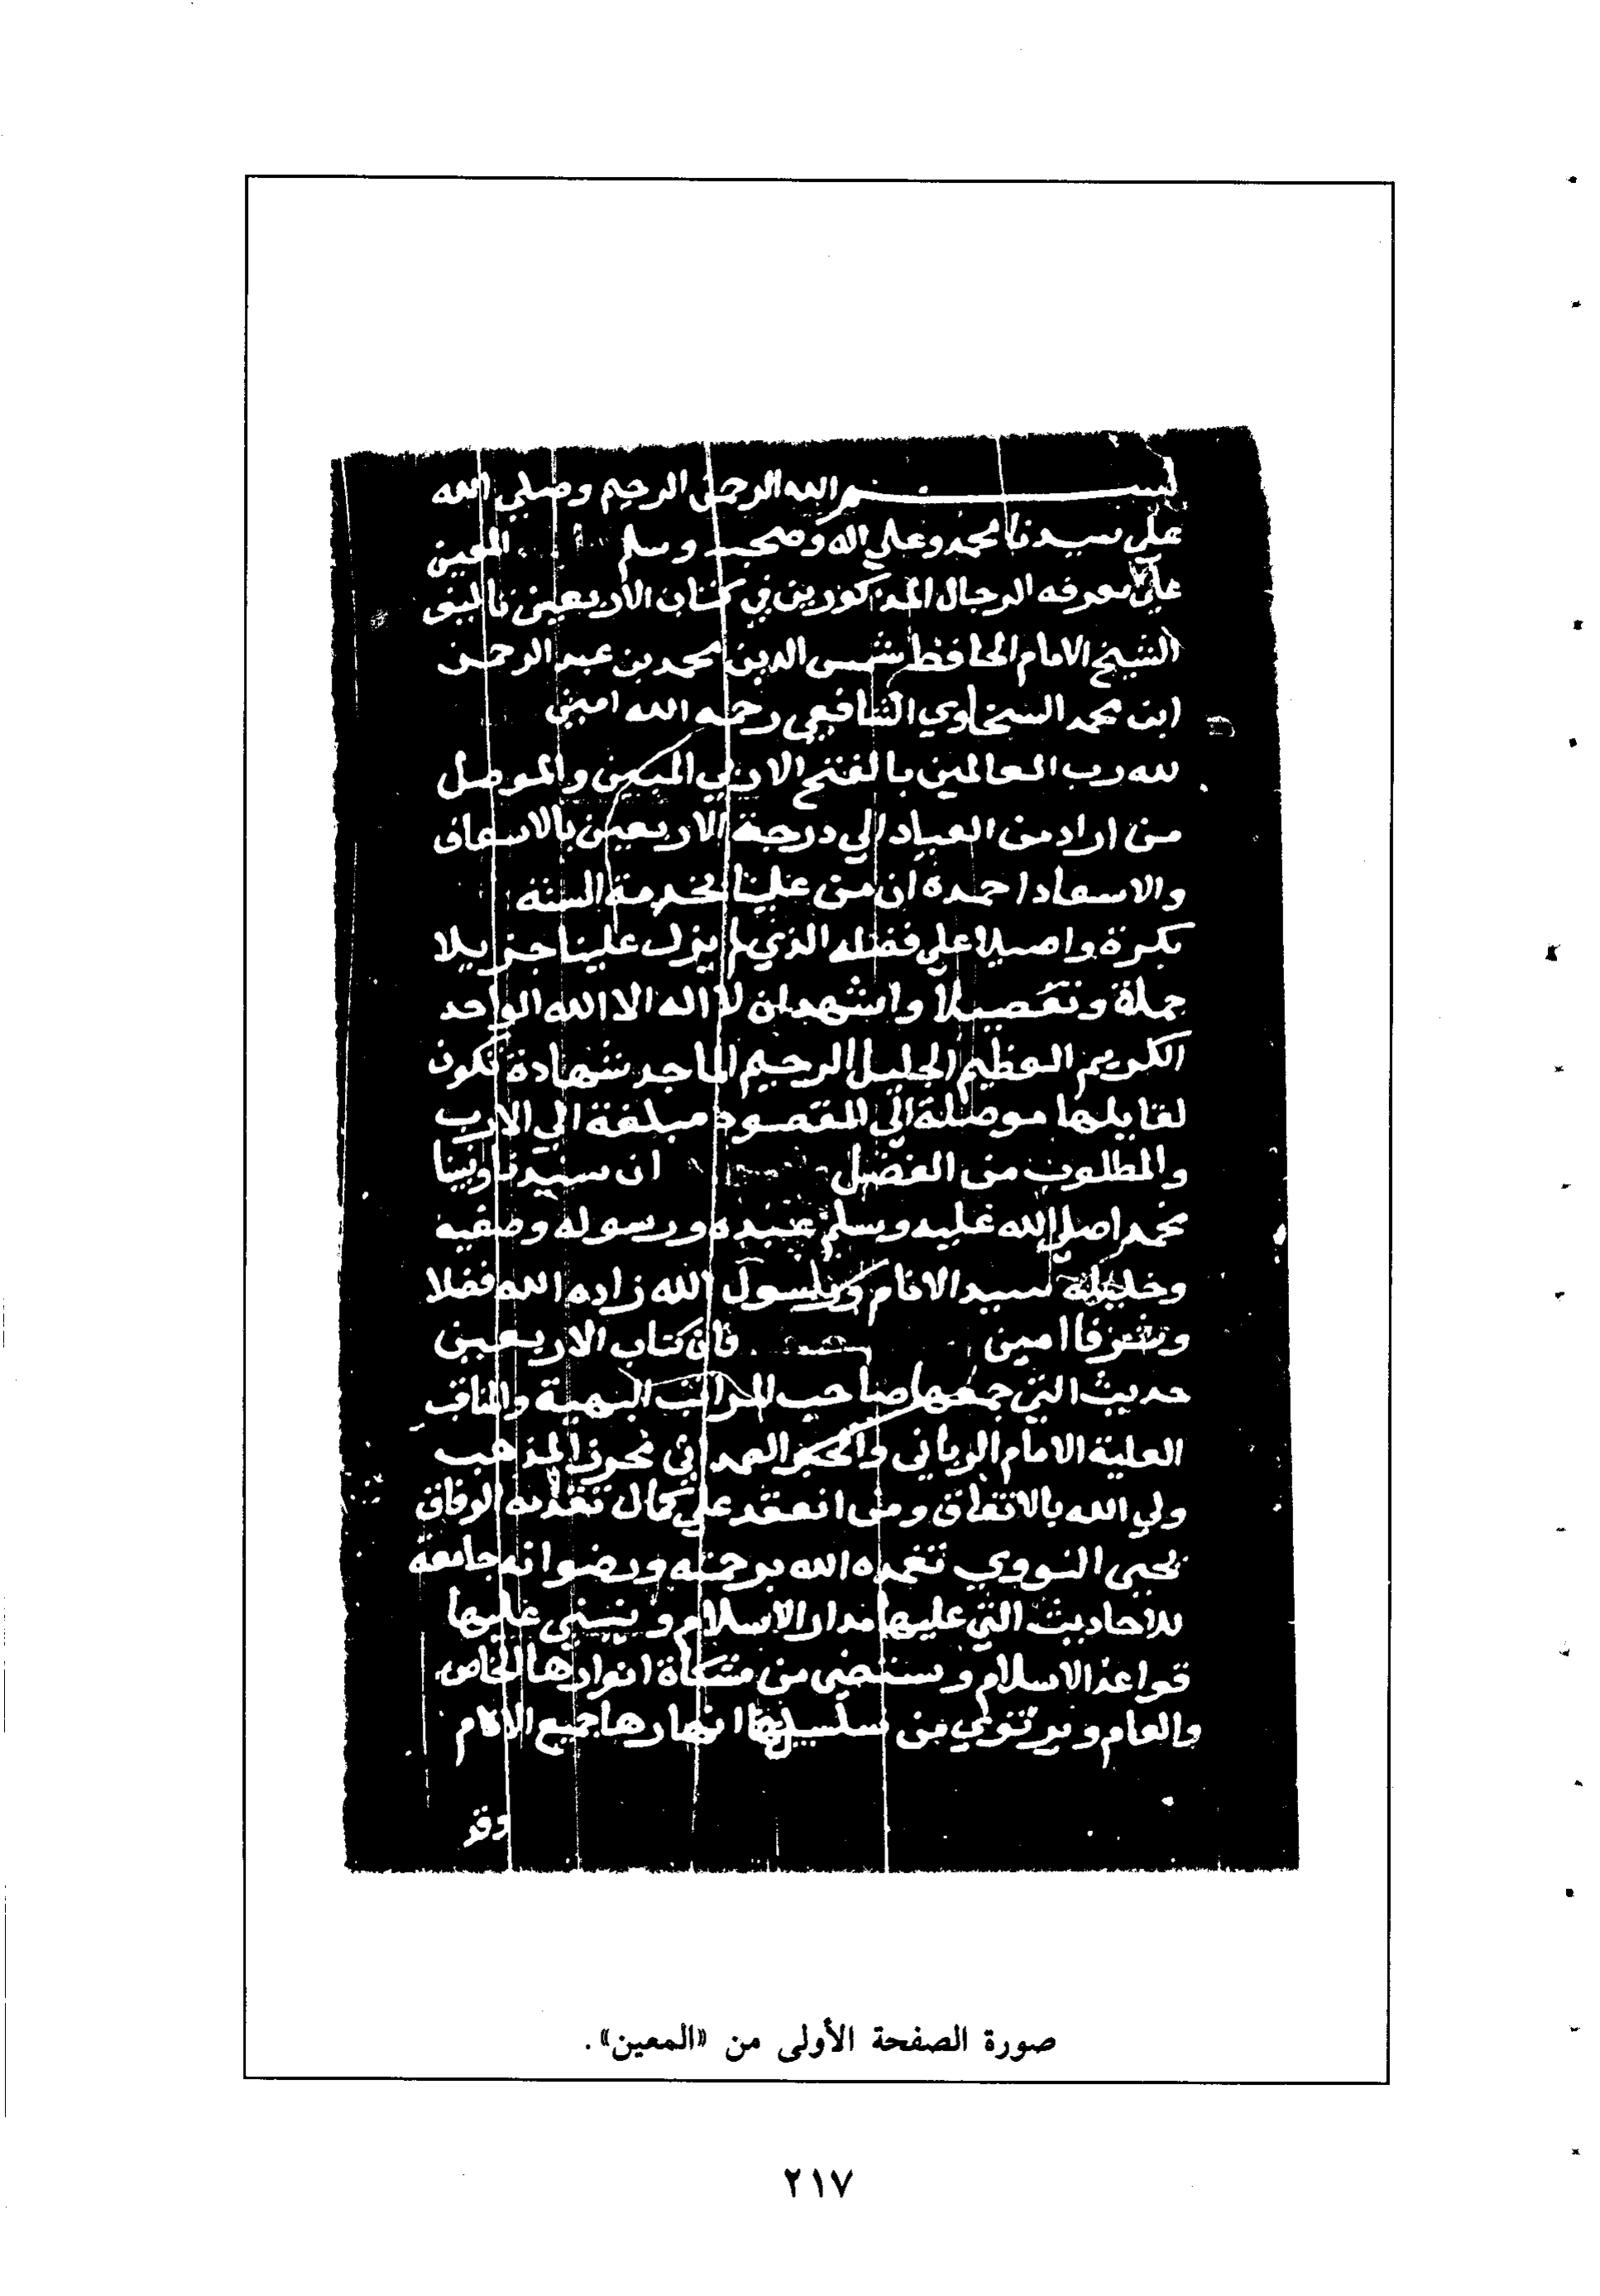 بسم الله الرحمن الرحيم وصلي الله
علي سيدنا محمد وعلي اله وصحبه وسلم المعين
علي معرفه الرجال المذكورين في كتاب الاربعين تاليف
الشيخ الامام الحافظ شمس الدين محمد بن عبد الرحمن
ابن محمد السخاوي الشافعي رحمه الله امين
لله رب العالمين بالفتح المبين والموصل
من اراد من العباد الي درجة الاربعين بالاسعاف
والاسعاد احمده ان من علينا بخدمة السنة
بكرة واصيلا علي فضله الذي لم يزل علينا جزيلا
جملة وتفصيلا واشهد ان لا اله الا الله الواحد
الكريم العظيم الجليل الرحيم الماجد شهادة تكون
لقايلها موصلة الي المقصود مبلغة الي الارب
والمطلوب من الفضل ان سيدنا ونبينا
محمدا صلي الله عليه وسلم عبده ورسوله وصفيه
وخليله سيد الانام الله زاده الله فضلا
وشرفا امين فان كتاب الاربعين
حديث التي جمعها صاحب المراتب البهية والمناقب
العلية الامام الرباني والحبر الصمداني محرر المذهب
ولي الله بالاتفاق ومن انعقد علي كمال الوفاق
يحيى النووي تغمده الله برحمته ورضوانه جامعة
للاحاديث التي عليها مدار الاسلام وينبني عليها
قواعد الاسلام ويستضي من مشكاة انوارها الخاص
والعام ويرتوي من سلسبيل انهارها جميع الانام
وقد
صورة الصفحة الأولى من «المعين».
٢١٧